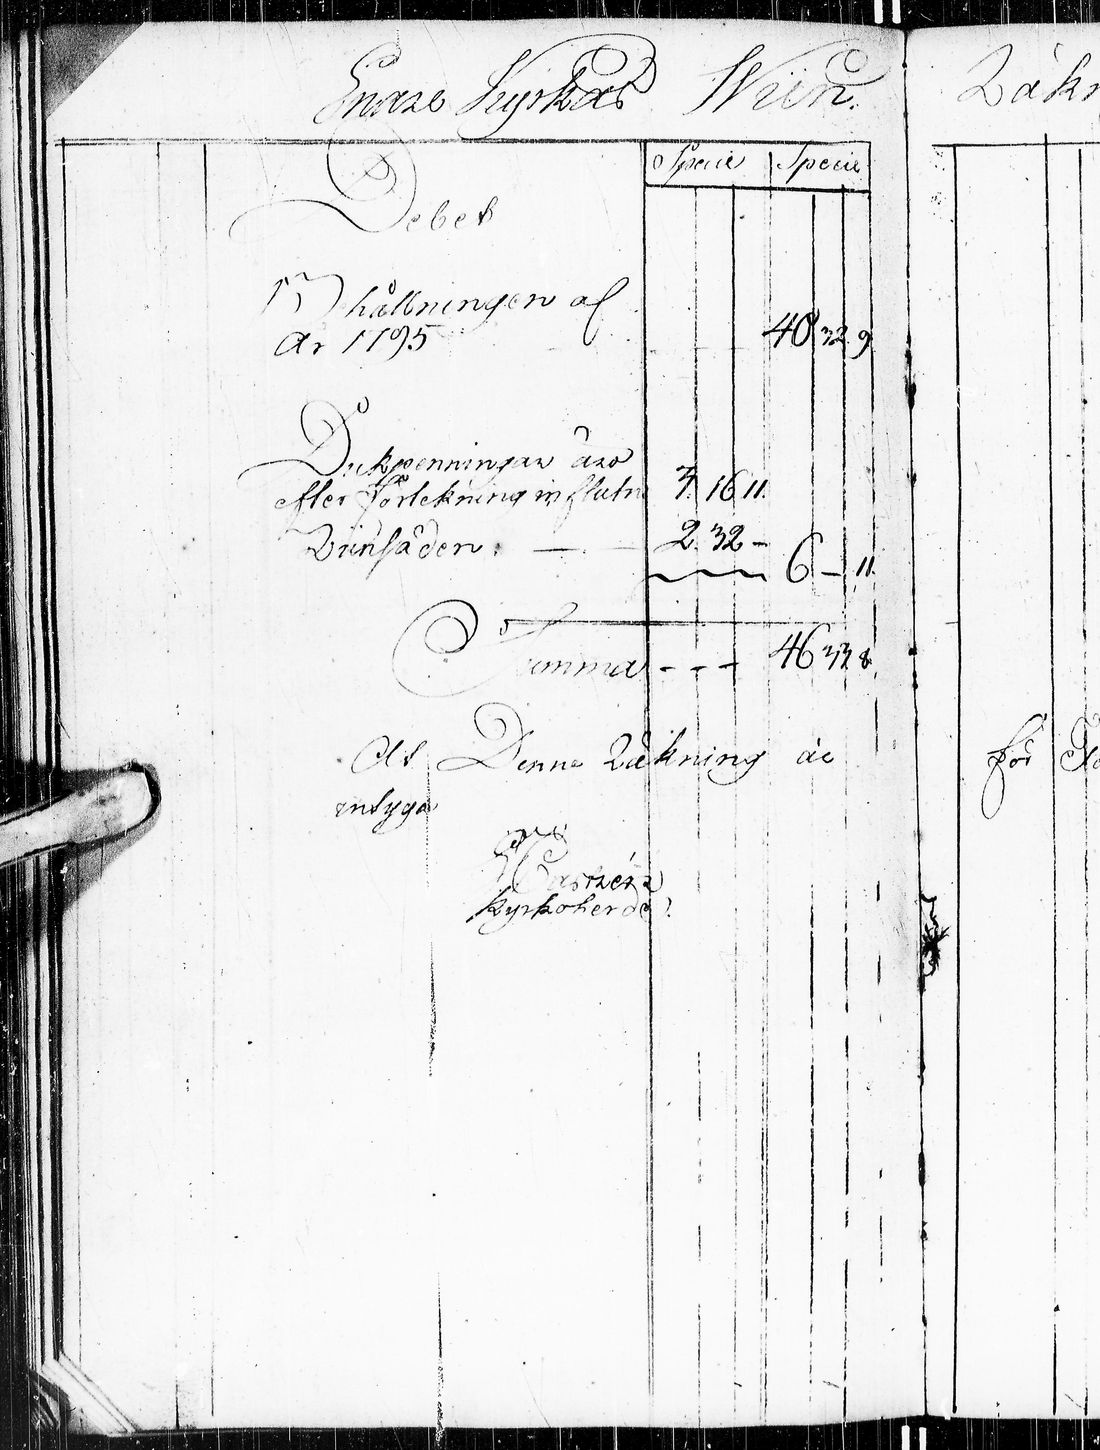 Enare Kyrkas Wiin
Specie Specie
Debet
Behållningen af
År 1795 40 32 9
Dukpenningar äro
efter förtekning influtne 3. 16 11.
Viinsåden. — — 2. 32 –
6 – 11.
Summa - - - 46 33 8
At Denne Räkning är
intyga
Kyrkoherde.
Räkn
för